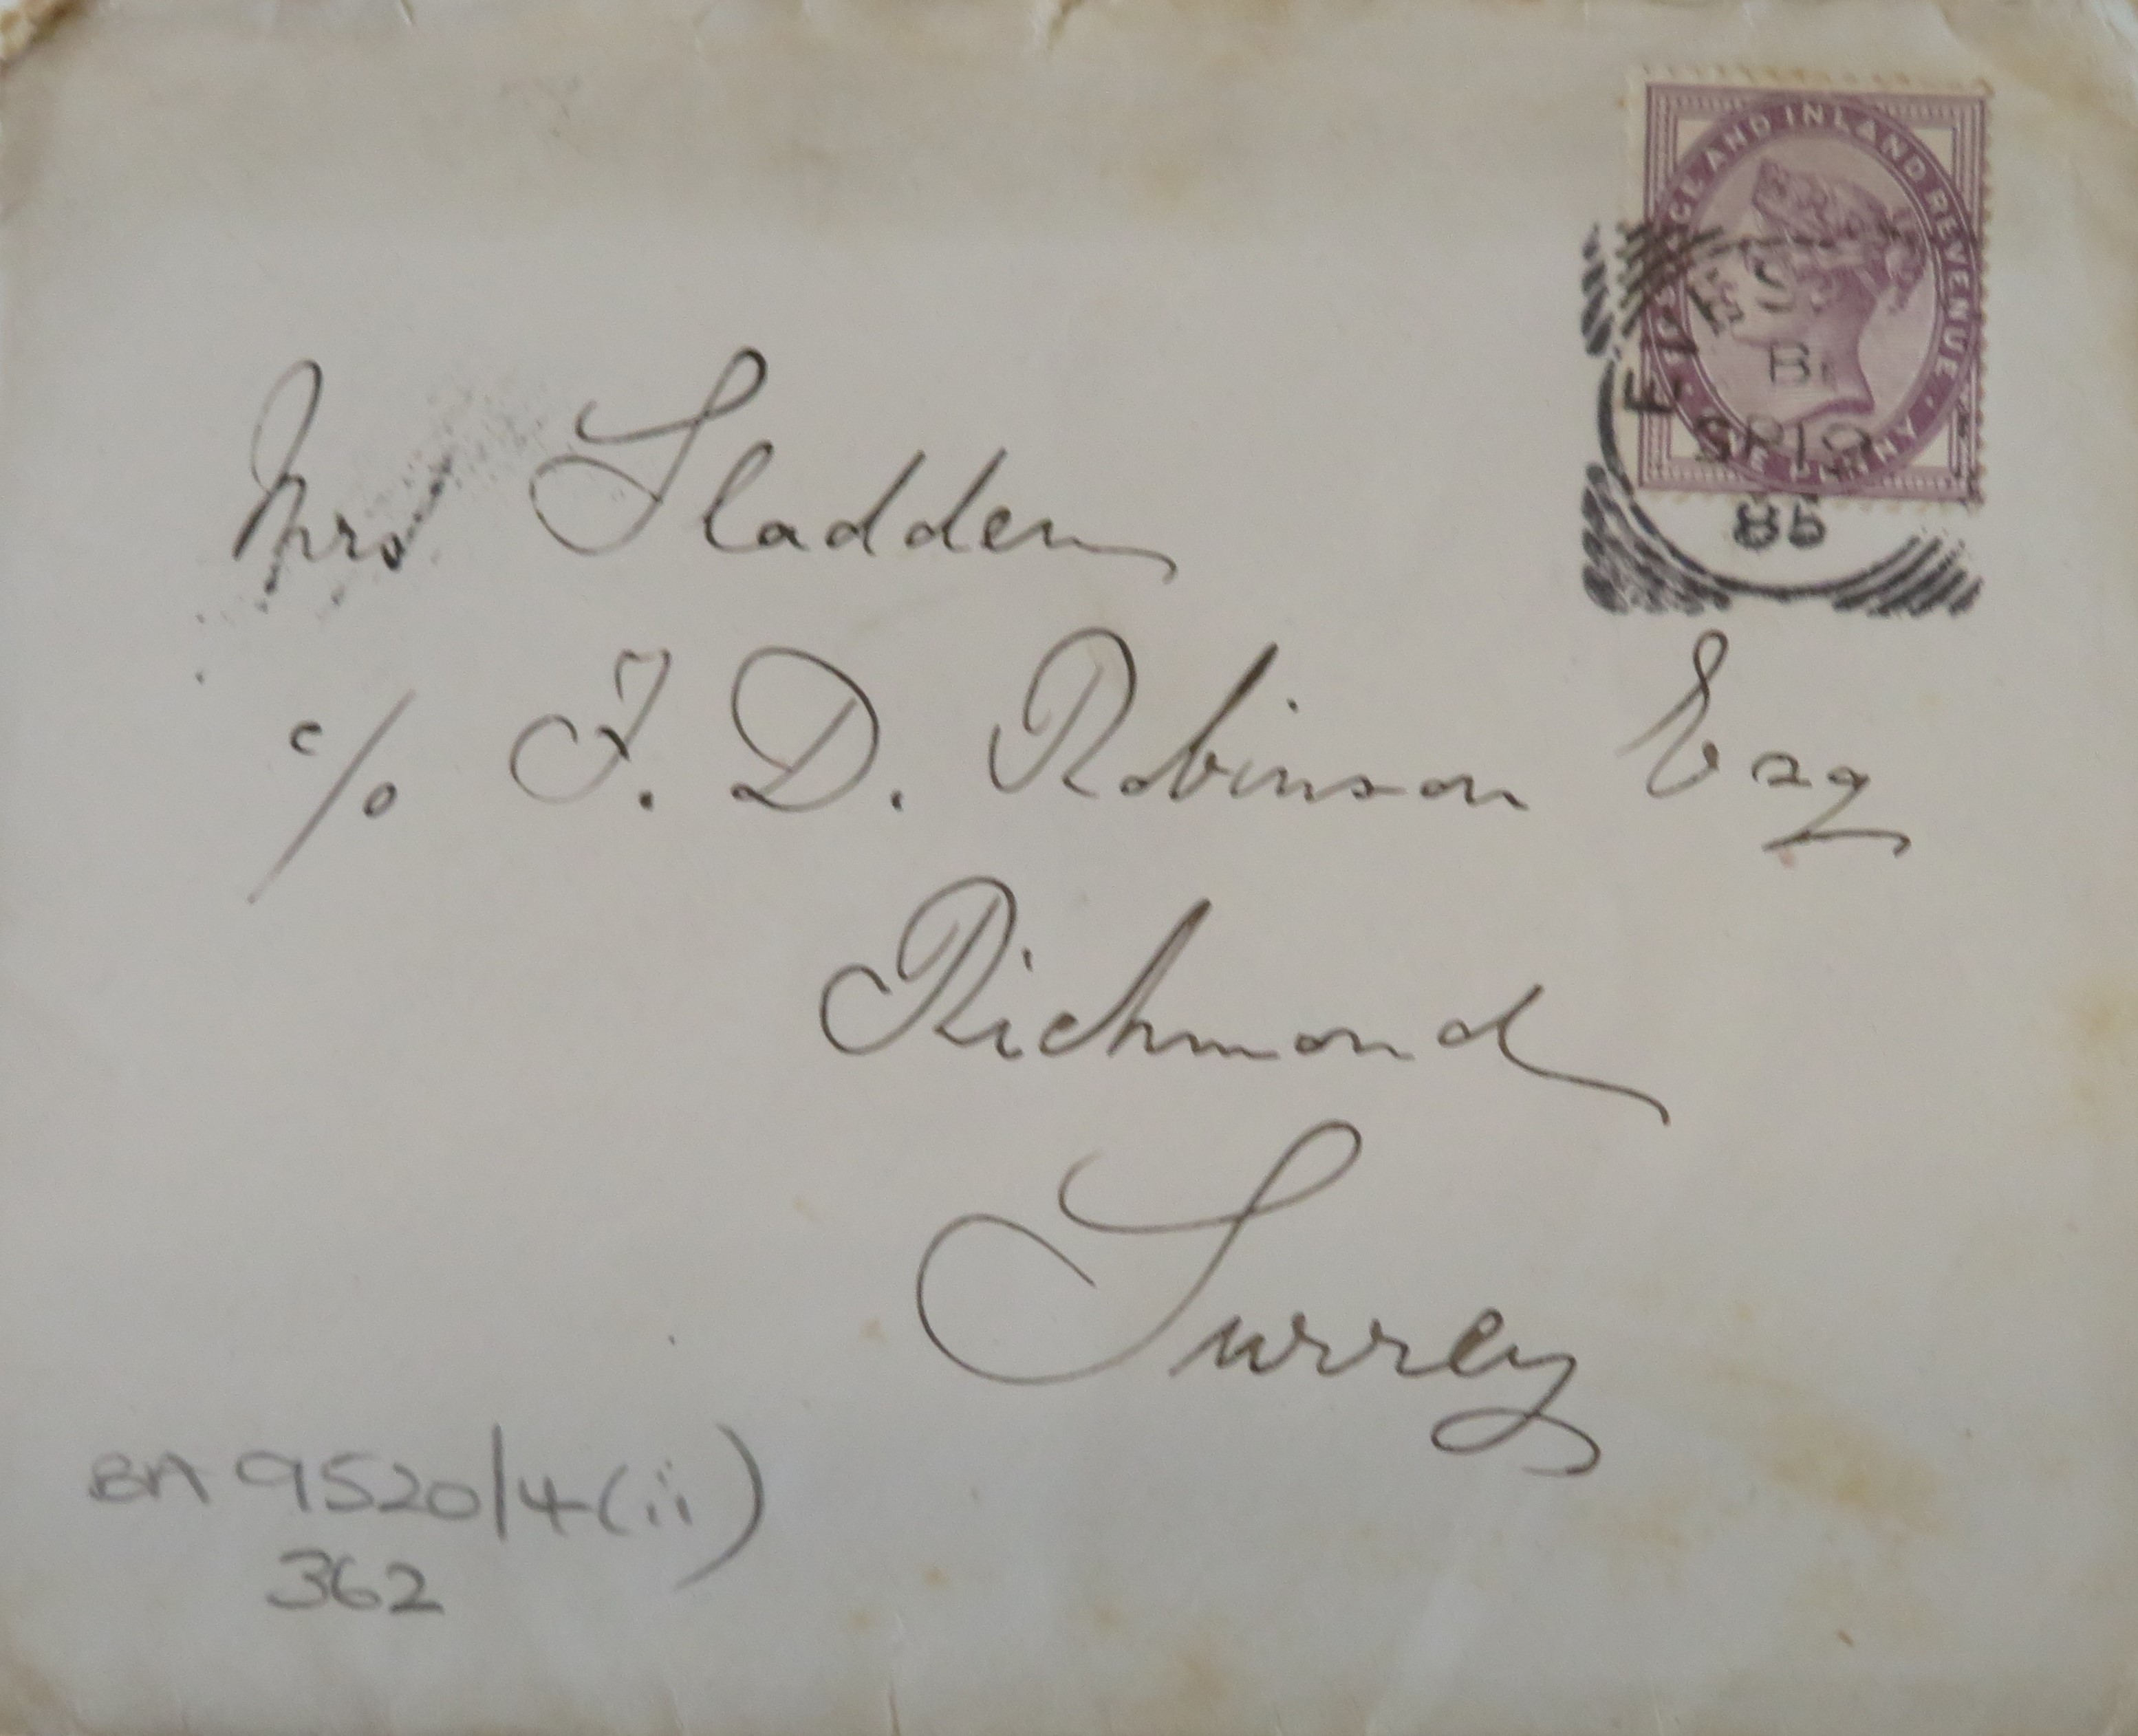 POSTAGE AND INLAND REVENUE
ONE PENNY
SP 19
86
Mrs Sladden
c/o J. D. Robinson Esq
Richmond
Surrey
BA 9520/4(ii)
362